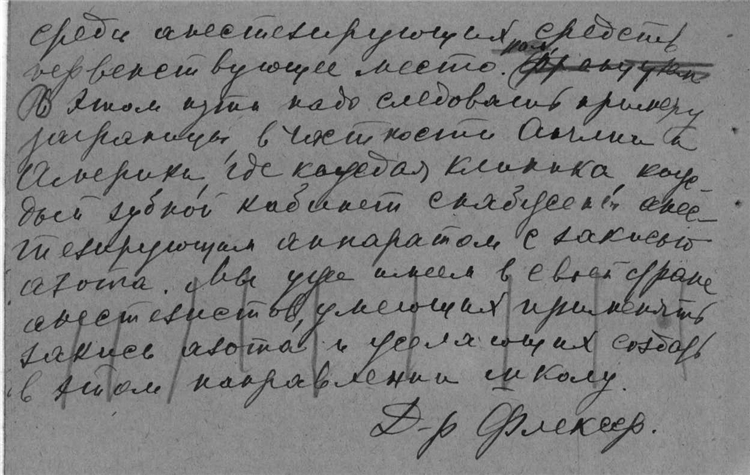 среди анестезирующих средств
первенствующее место.
В этом пути надо следовать примеру
заграницы, в частности Англии и
Америки, где каждая клиника каж-
дый зубной кабинет снабжены анес-
тезирующим аппаратом с закисью
азота. Мы уже имеем в своей стране
анестезистов, умеющих применять
закись азота и желающих создать
в этом направлении школу.
Д-р Флексер.